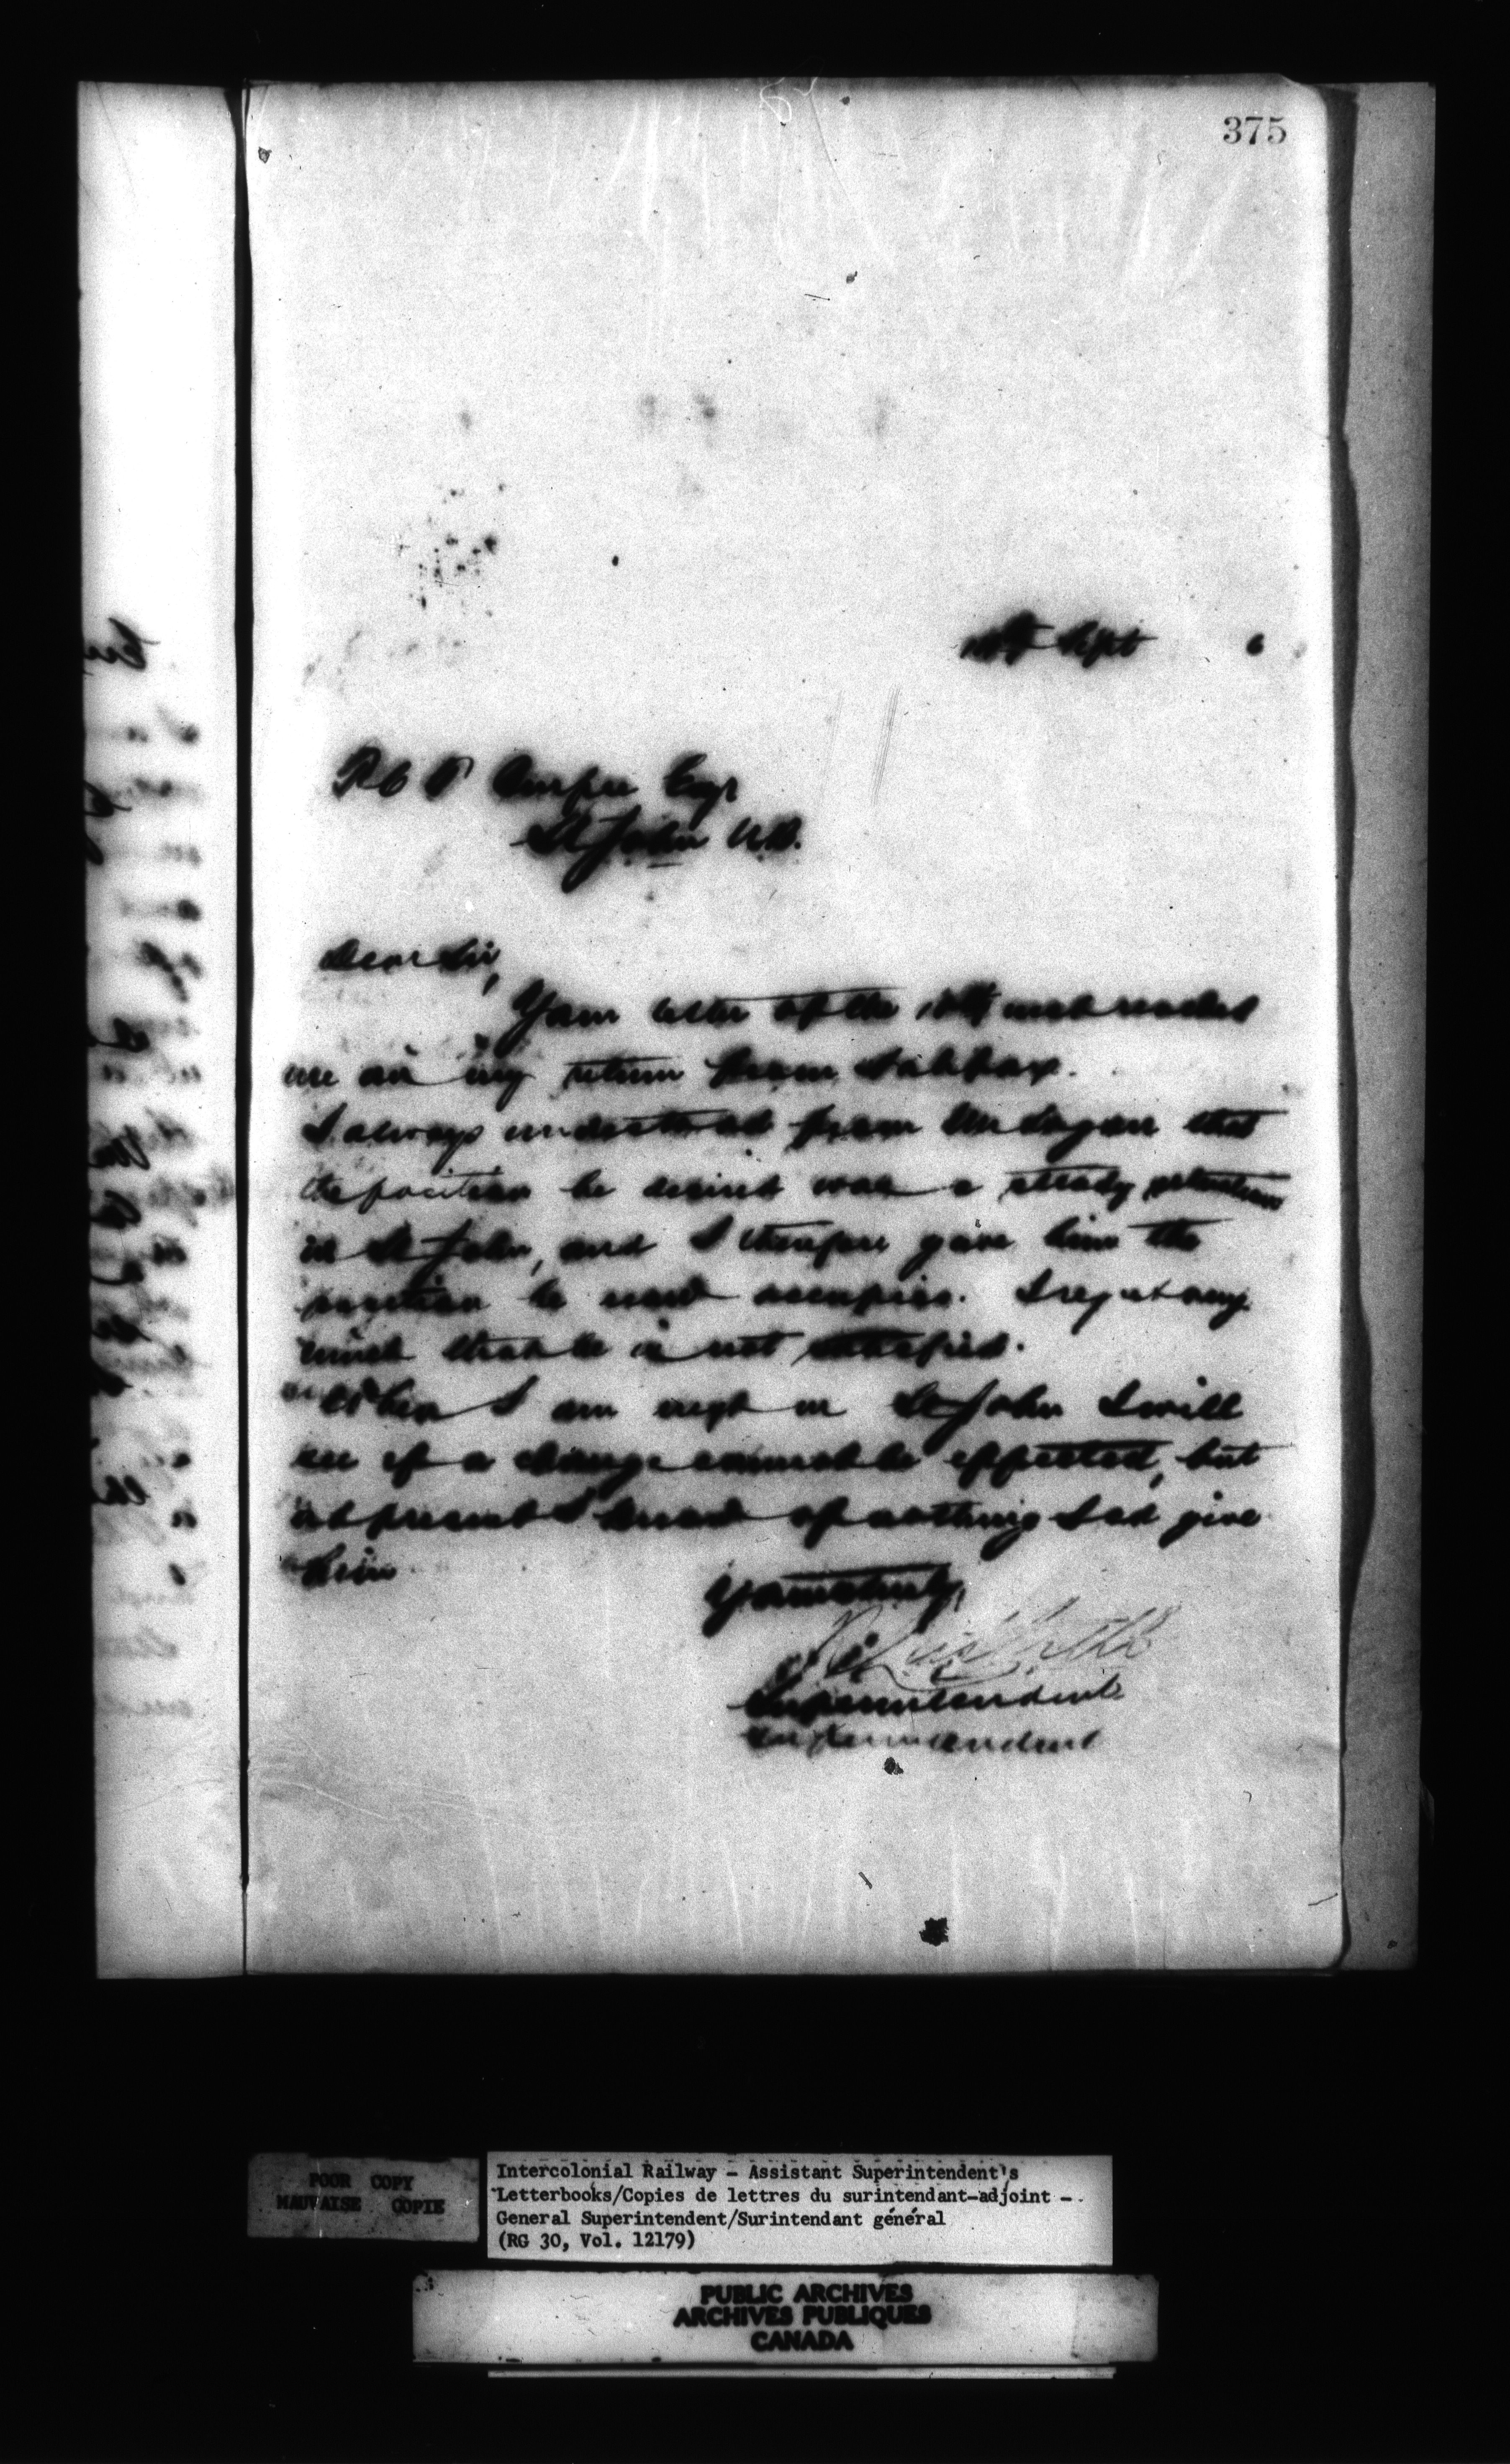 375
Sept 6
R & P Burpee Esqr
St John N.B.
Dear Sir,
Your letter of the 10th inst reached
me on my return from Halifax.
I always understood from that
the position he desired was a steady
in St John, and I therefore gave him the
position he now occupies. I regret very
much that he is not satisfied.
When I am next in St John I will
see if a change cannot be effected, but
at present I know of nothing I can give
him
Yours truly,
Superintendent
Superintendent
POOR COPY
MAUVAISE COPIE
Intercolonial Railway - Assistant Superintendent's
Letterbooks/Copies de lettres du surintendant-adjoint -
General Superintendent/Surintendant général
(RG 30, Vol. 12179)
PUBLIC ARCHIVES
ARCHIVES PUBLIQUES
CANADA